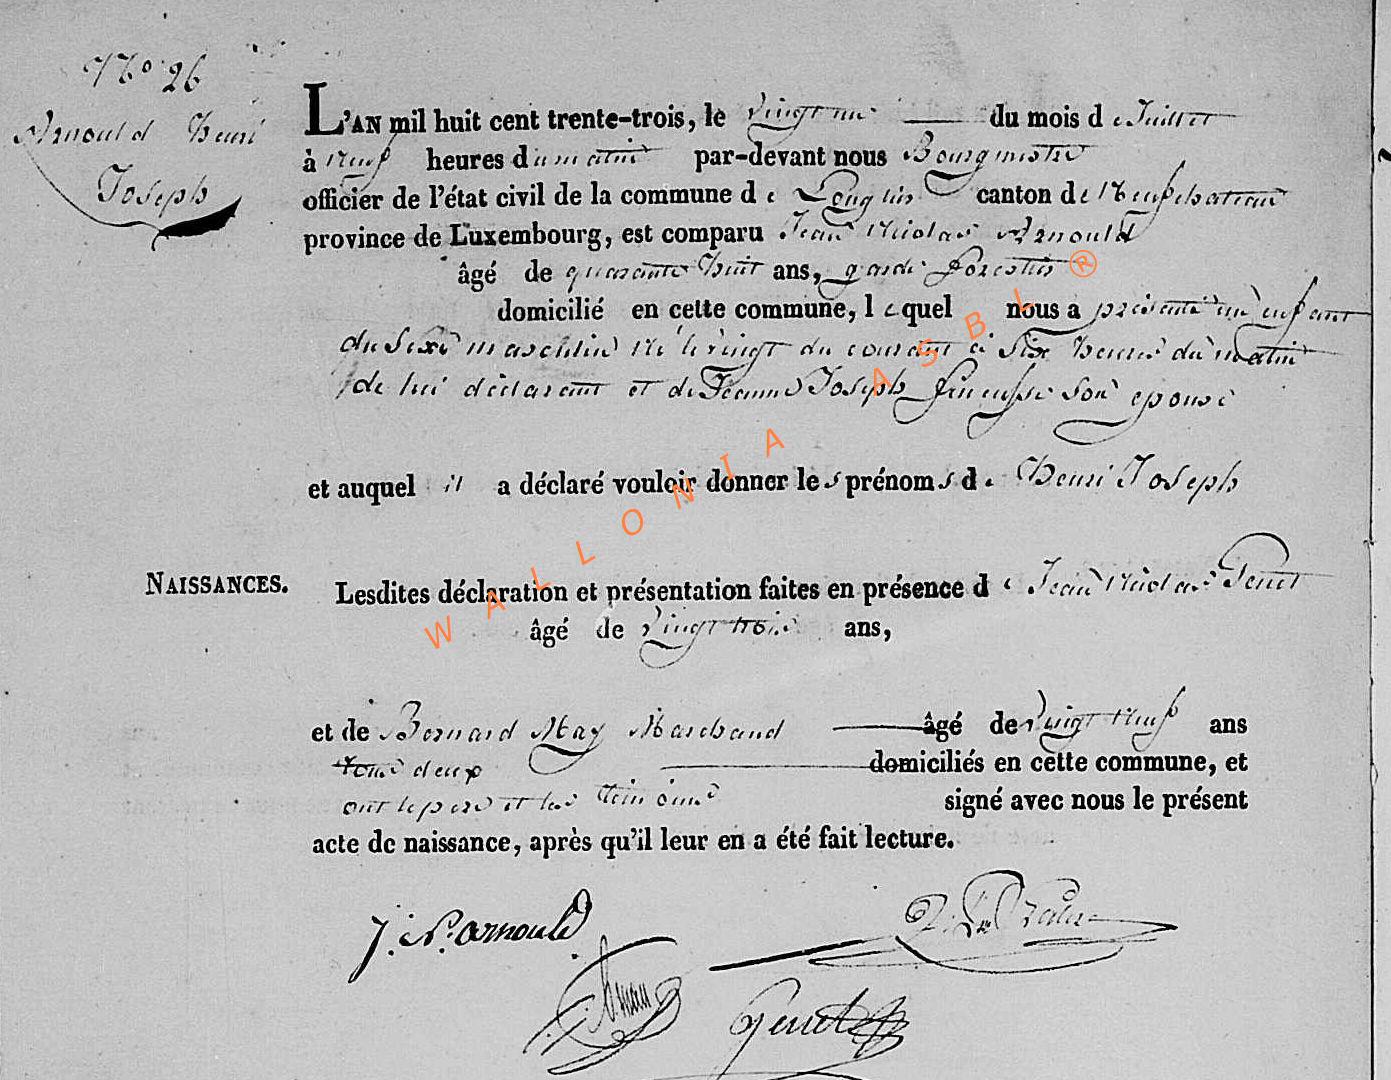 No 26
Arnould henri
Joseph
L'AN mil huit cent trente-trois, le vingt un du mois de Juillet
à neuf heures du matin par-devant nous Bourgmestre
officier de l'état civil de la commune de Longlier canton de Neufchateau
province de Luxembourg, est comparu Jean Nicolas Arnould
âgé de quarante huit ans, garde forestier
domicilié en cette commune, lequel nous a présenté un enfant
du sexe masculin né le vingt du courant à six heures du matin
de lui déclarant et de Jeanne Joseph son épouse
et auquel il a déclaré vouloir donner les prénoms de henri Joseph
NAISSANCES.
Lesdites déclaration et présentation faites en présence de Jean Nicolas
âgé de vingt trois ans,
et de Bernard May Marchand âgé de vingt neuf ans
tous deux domiciliés en cette commune, et
ont le pere et les temoins signé avec nous le présent
acte de naissance, après qu'il leur en a été fait lecture.
J. N. arnould
WALLONIA ASBL ®